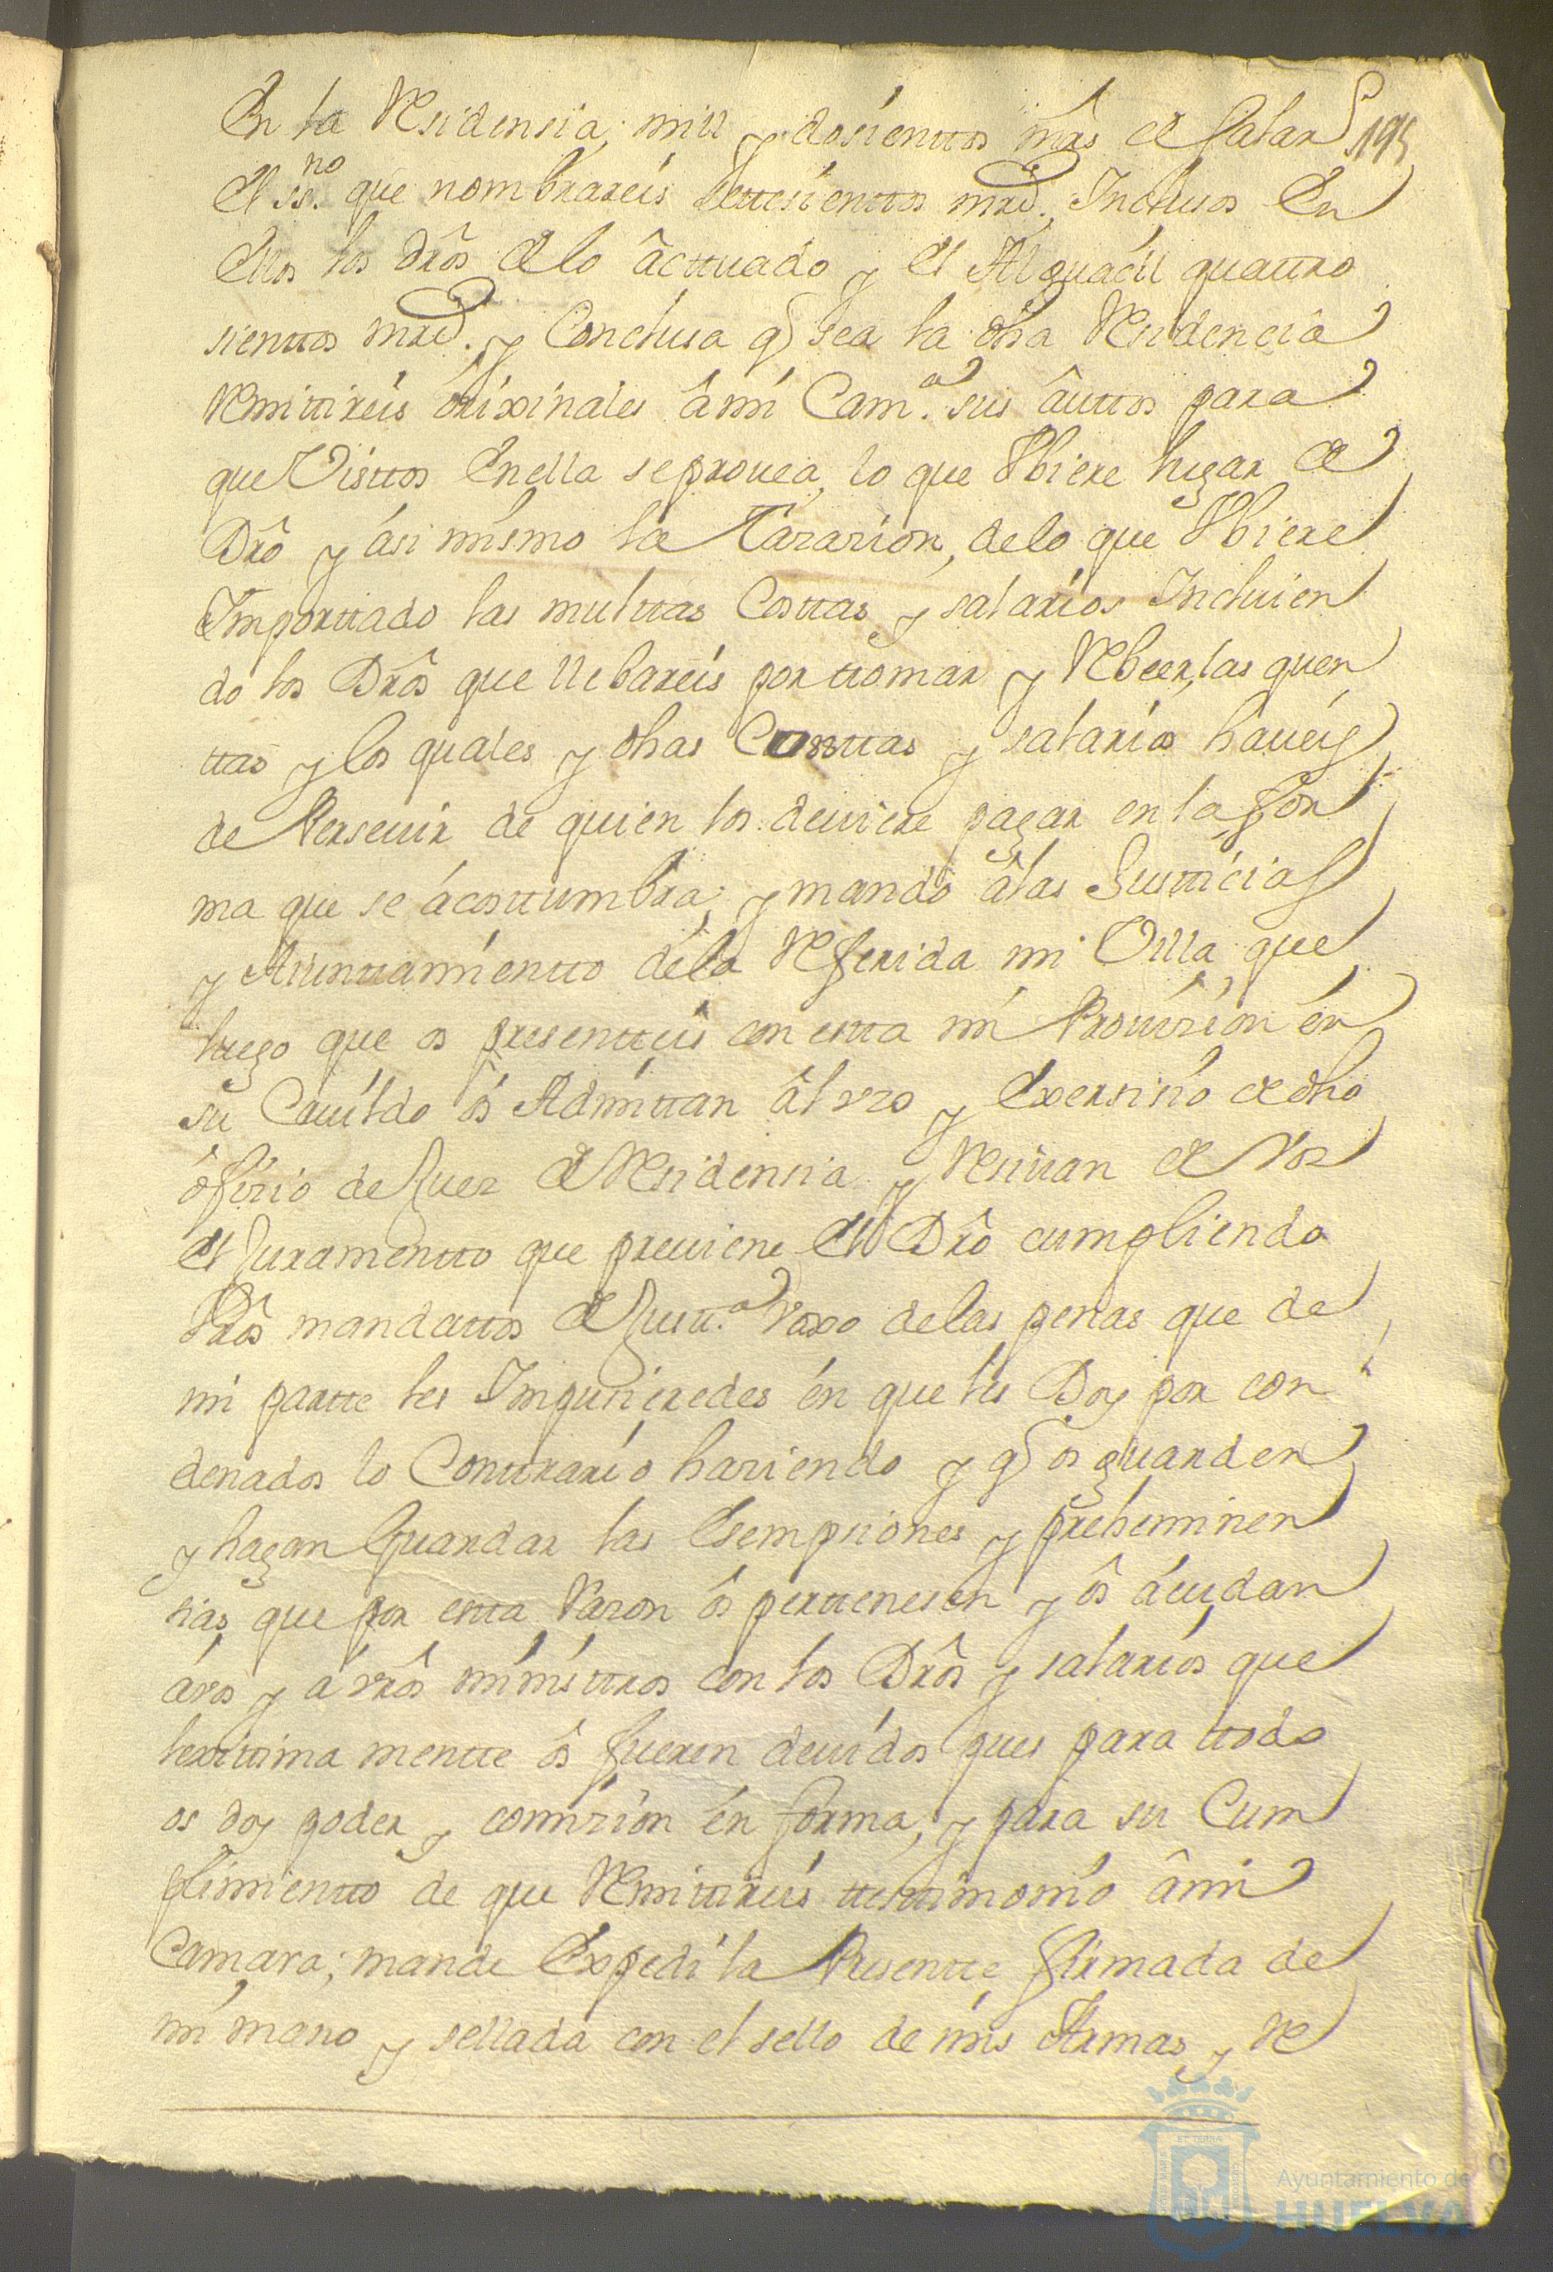 En la Residensia, mill y dosienttos mrs̃ de salar
195
El ss.no que nombrareis settesienttos mrd. Inclusos En
Ellos los Drôs de lo âcttuado y el Alguacil quattro
sienttos mrd. y Conclusa q̃ sea la dha Residencia
Remittireis ôrixinales â mi Cam.a sus âuttos para
que Visttos En ella se provea, lo que Vbiere lugar de
Drô y ási mismo la Tazazion, de lo que Vbiere
Importtado las multtas Costtas y salarios Incluien
do los Drôs que llebareis por ttomar y Rbeer, las quen
ttas y los quales y dhas Costtas y salarios haveis
de Persevir de quien los deviere pagar en la for
ma que se ácosttumbra; y mando â las Justticias
y Aiunttamientto de la Referida mi Villa, que
luego que os presentteis con estta mi Provizion én
su Cavildo ôs Admittan âl vzo y Exersisio de dho
ôfizio de Juez de Residensia y Resivan de Vos
el Juramentto que previene el Drô cumpliendo
Vrôs mandattos de Justt.a vaxo de las penas que de
mi partte les Impusieredes én que les Doy por con
denados lo Conttrario haziendo y q̃ os guarden
y hagan Guardar las Esempsiones y preheminen
sias que por estta Razon ôs perttenesen y ôs ácudan
á vos y á vrôs ministtros con los Drôs y salarios que
lexittima mentte ôs fueren devidos pues para ttodo
os doy poder y comizion én forma, y para su Cum
plimientto de que Remittireis ttesttimonio â mi
Camara; mande Expedi la Presentte firmada de
mi mano y sellada con el sello de mis Armas y Re
Ayuntamiento de
HUELVA